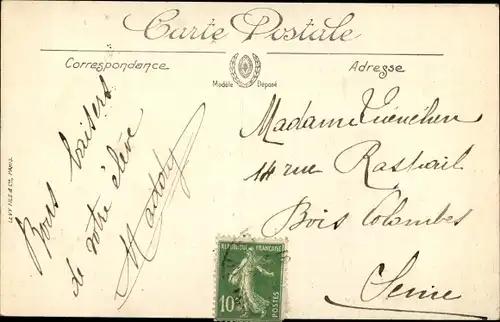 Carte Postale
Correspondance
Adresse
Modèle Déposé
LEVY FILS & Cie, PARIS.
Bons baisers
de votre élève
Madame
14 rue Raspail
Bois Colombes
Seine
RÉPUBLIQUE FRANÇAISE
10c
POSTES